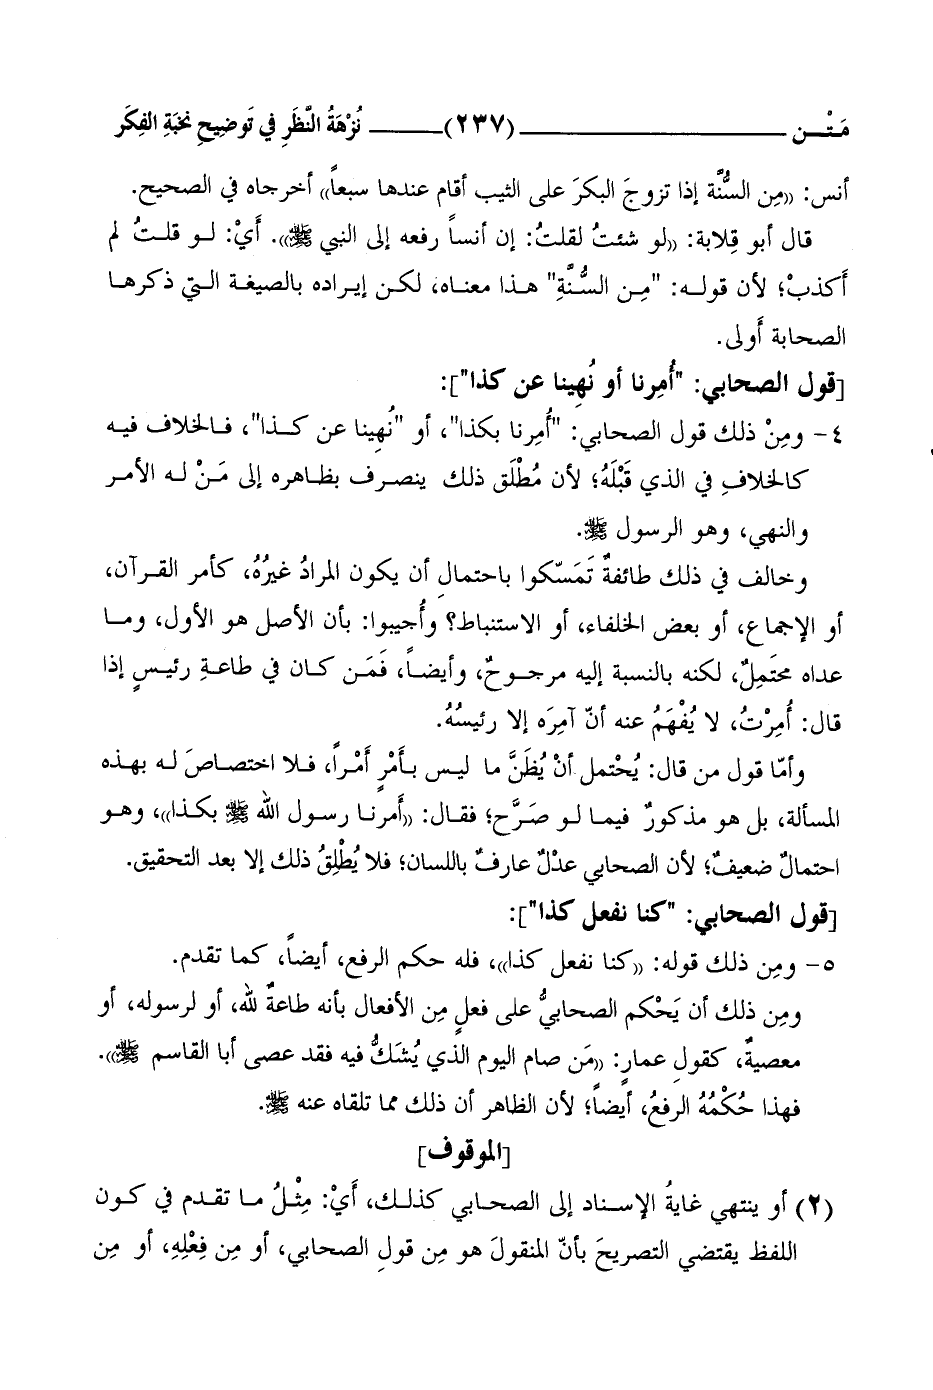 مَتْـــن ــــــــــــــــــــ (٢٣٧) ــــــــ نُزْهَةُ النَّظَرِ في تَوضيحِ نخبَةِ الفِكَر
أنس: «مِن السُّنَّة إذا تزوجَ البكرَ على الثيب أقام عندها سبعاً» أخرجاه في الصحيح.
قال أبو قِلابة: «لو شئتُ لقلتُ: إن أنساً رفعه إلى النبي ﷺ». أَيْ: لـو قلـتُ لم
أَكذبْ؛ لأن قولـه: "مِـن السُّـنَّةِ" هـذا معنـاه، لكـن إيـراده بالصيغـة الـتي ذكرهـا
الصحابة أَولى.
[قول الصحابي: "أُمِرنا أو نُهِينا عن كذا"]:
٤- ومِنْ ذلك قول الصحابي: "أُمِرنا بكذا"، أو "نُهِينا عن كـذا"، فـالخلاف فيه
كالخلافِ في الذي قَبْلَهُ؛ لأن مُطْلَق ذلك ينصرف بظـاهره إلى مَـنْ لـه الأمـر
والنهي، وهو الرسول ﷺ.
وخالف في ذلك طائفةٌ تَمَسّكوا باحتمالِ أن يكون المرادُ غيرُهُ، كأمر القـرآن،
أو الإجماع، أو بعض الخلفاء، أو الاستنباط؟ وأُجيبوا: بأن الأصل هو الأول، ومـا
عداه محتَمِلٌ، لكنه بالنسبة إليه مرجـوحٌ، وأيضـاً، فَمَـن كـان في طاعـةِ رئيـسٍ إذا
قال: أُمِرْتُ، لا يُفْهَمُ عنه أنّ آمِرَه إلا رئيسُهُ.
وأمّا قول من قال: يُحْتمل أنْ يُظَنَّ ما ليس بـأَمْرٍ أَمْـراً، فـلا اختصـاصَ لـه بهـذه
المسألة، بل هـو مذكـورٌ فيمـا لـو صَرَّح؛ فقـال: «أَمرنـا رسـول الله ﷺ بكـذا»، وهـو
احتمالٌ ضعيفٌ؛ لأن الصحابي عدْلٌ عارفٌ باللسان؛ فلا يُطْلِقُ ذلك إلا بعد التحقيق.
[قول الصحابي: "كنا نفعل كذا"]:
٥- ومِن ذلك قوله: «كنا نفعل كذا»، فله حكم الرفع، أيضاً، كما تقدم.
ومِن ذلك أن يَحْكم الصحابيُّ على فعلٍ مِن الأفعال بأنه طاعةٌ لله، أو لرسوله، أو
معصيةٌ، كقولِ عمارٍ: «مَن صام اليوم الذي يُشَكُّ فيه فقد عصى أبا القاسم ﷺ».
فهذا حُكْمُهُ الرفعُ، أيضاً؛ لأن الظاهر أن ذلك مما تلقاه عنه ﷺ.
[الموقوف]
(٢) أو ينتهي غايةُ الإسـناد إلى الصـحابي كذلـك، أَيْ: مِثْـلُ مـا تقـدم في كـون
اللفظ يقتضي التصريحَ بأنّ المنقولَ هـو مِـن قـولِ الصحابي، أو مِـن فِعْلِهِ، أو مِن